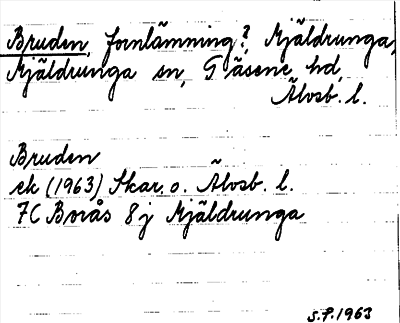 Bruden, fornlämning?, Mjäldrunga,
Mjäldrunga sn, Gäsene hd,
Älvsb. l.
Bruden
ek (1963) Skar. o. Älvsb. l.
7C Borås 8j Mjäldrunga
S.P. 1963